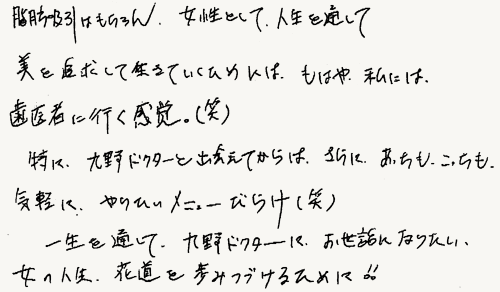 脂肪吸引はもちろん、女性として、人生を通して
美を追求して生きていくためには、もはや、私には、
歯医者に行く感覚。(笑)
特に、九野ドクターと出会えてからは、さらに、あっちも、こっちも、
気軽に、やりたいメニューだらけ(笑)
一生を通して、九野ドクターに、お世話になりたい、
女の人生、花道を歩みつづけるために!!